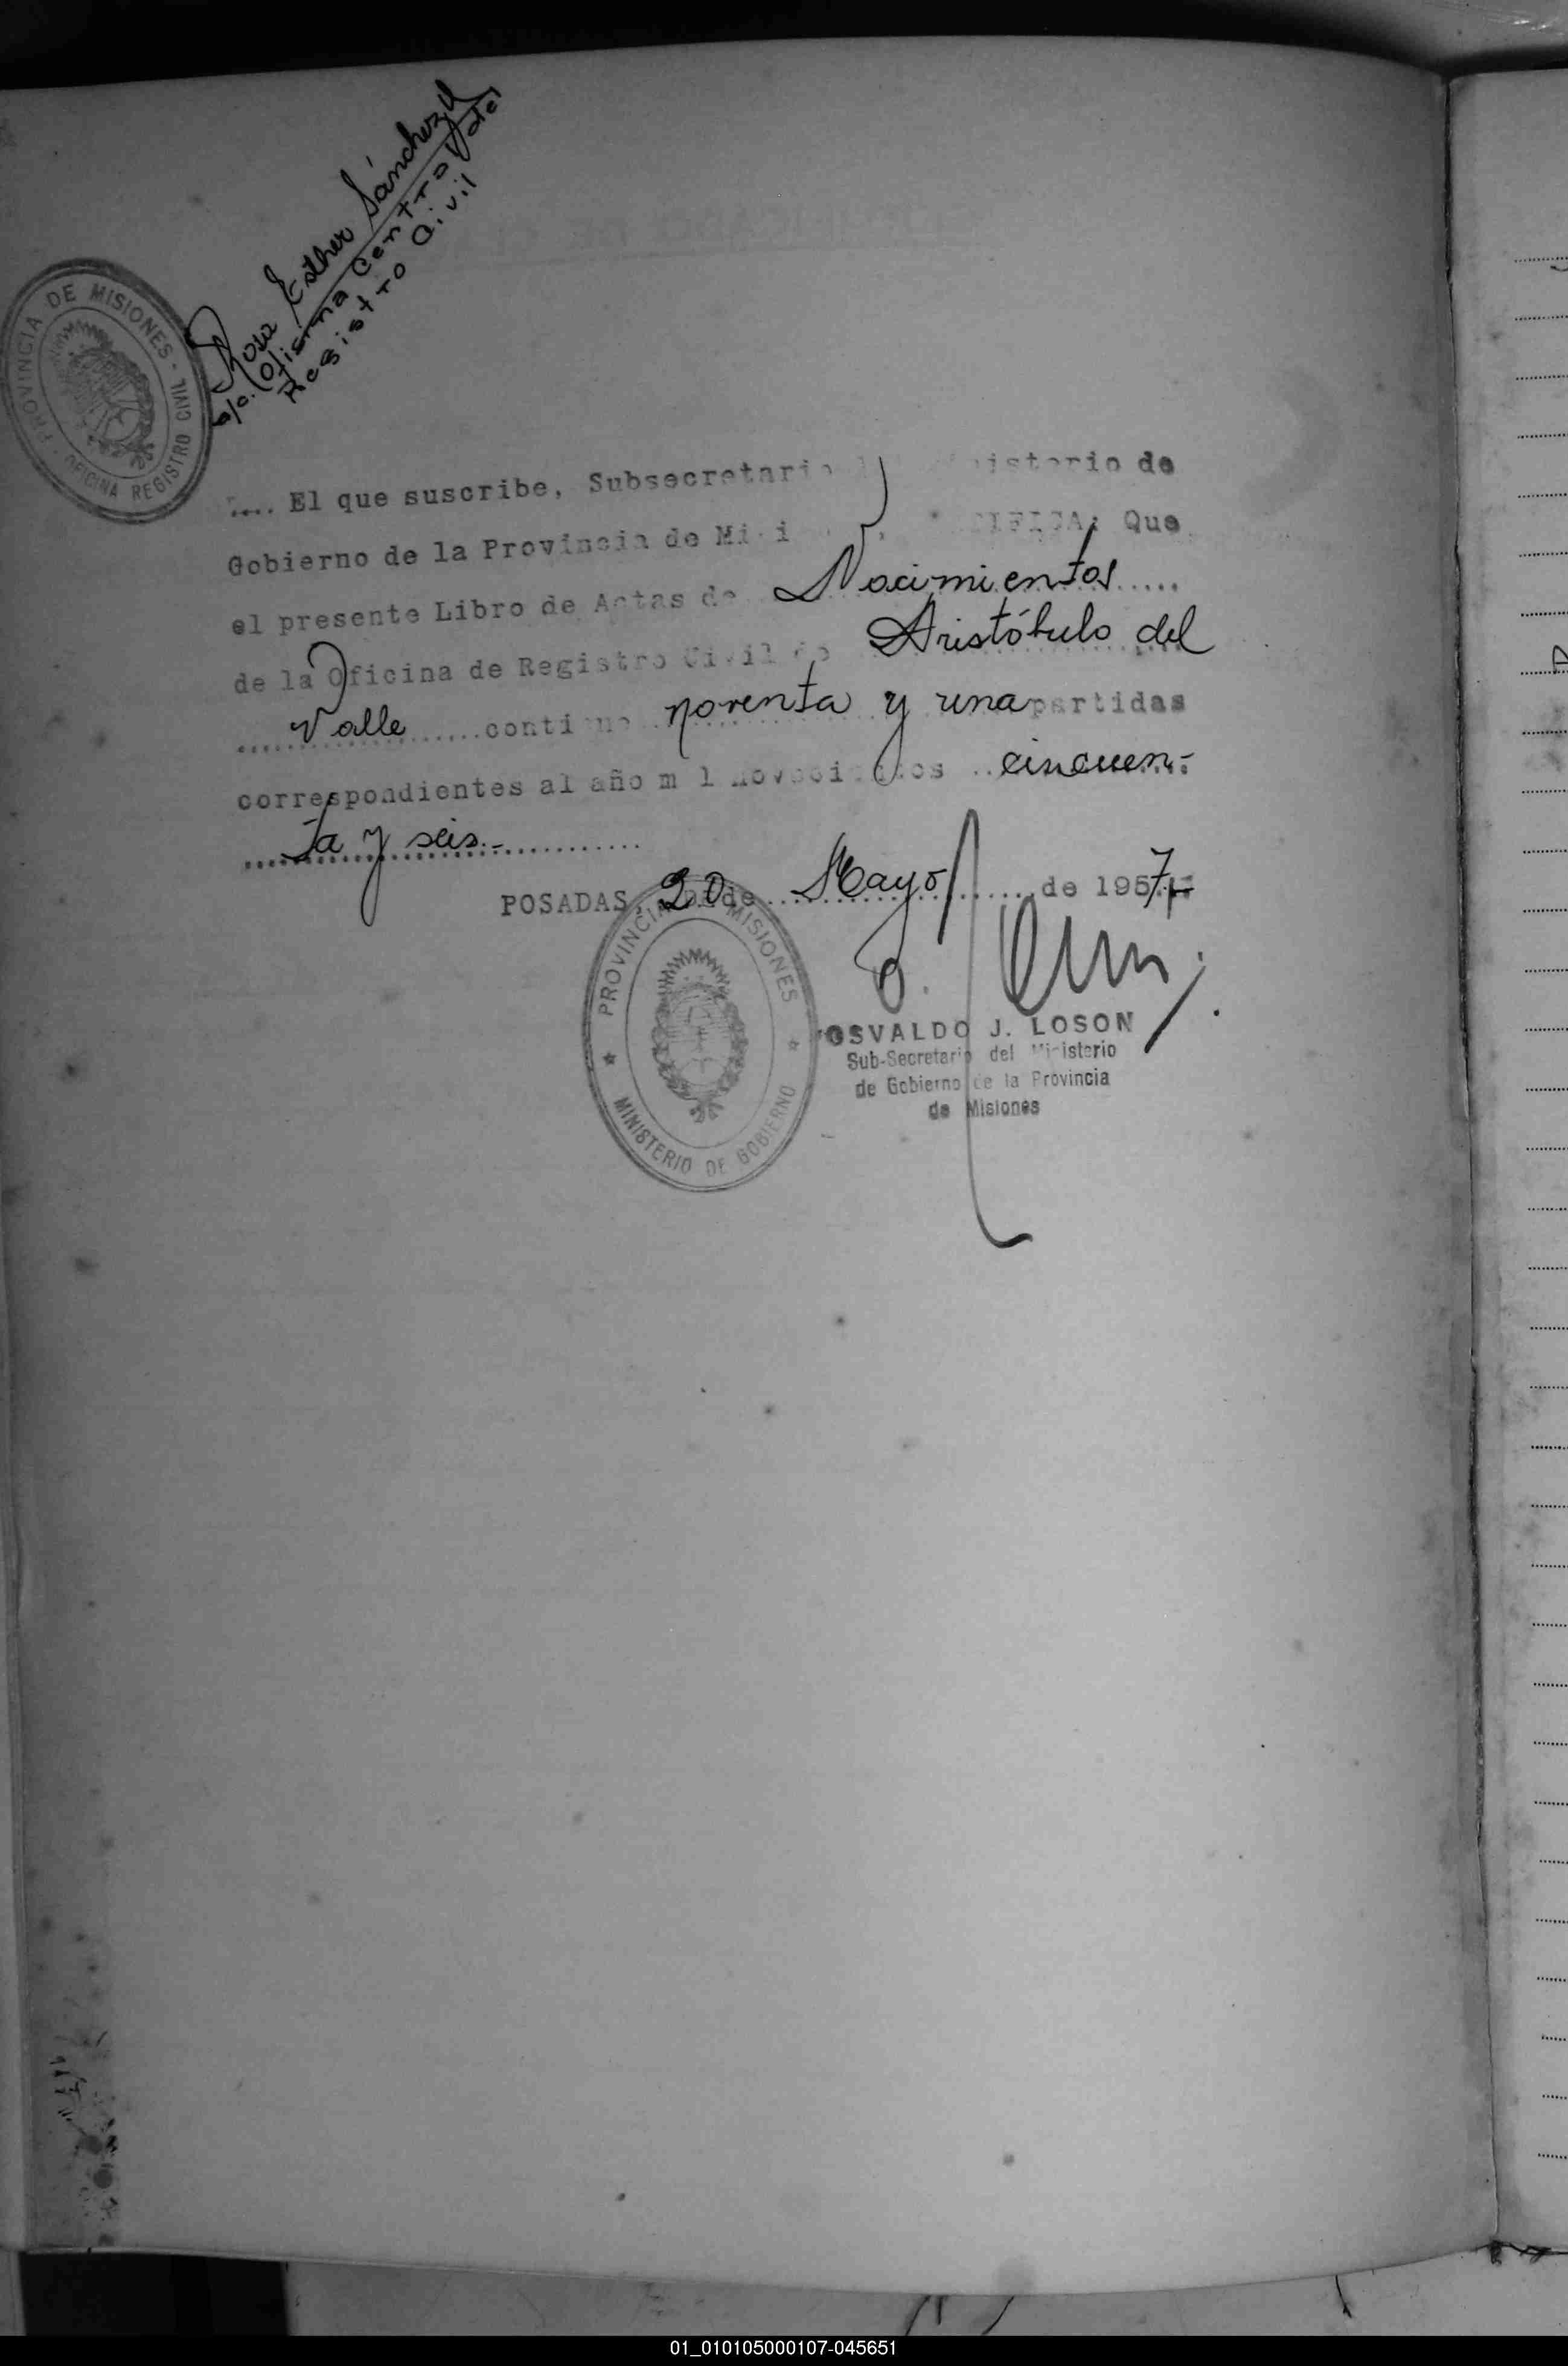 Rosa Esther Sánchez
a/c. Oficina Central del
Registro Civil
PROVINCIA DE MISIONES - OFICINA REGISTRO CIVIL
.... El que suscribe, Subsecretario del Ministerio de
Gobierno de la Provincia de Misiones, CERTIFICA: Que
el presente Libro de Actas de Nacimientos.....
de la Oficina de Registro Civil de Aristóbulo del
.... Valle ......contiene noventa y una partidas
correspondientes al año mil novecientos ..cincuen-
ta y seis.-............
POSADAS, 20 de ... Mayo ..... de 1957.-
PROVINCIA DE MISIONES ★ MINISTERIO DE GOBIERNO ★
OSVALDO J. LOSON
Sub-Secretario del Ministerio
de Gobierno de la Provincia
de Misiones
01_010105000107-045651